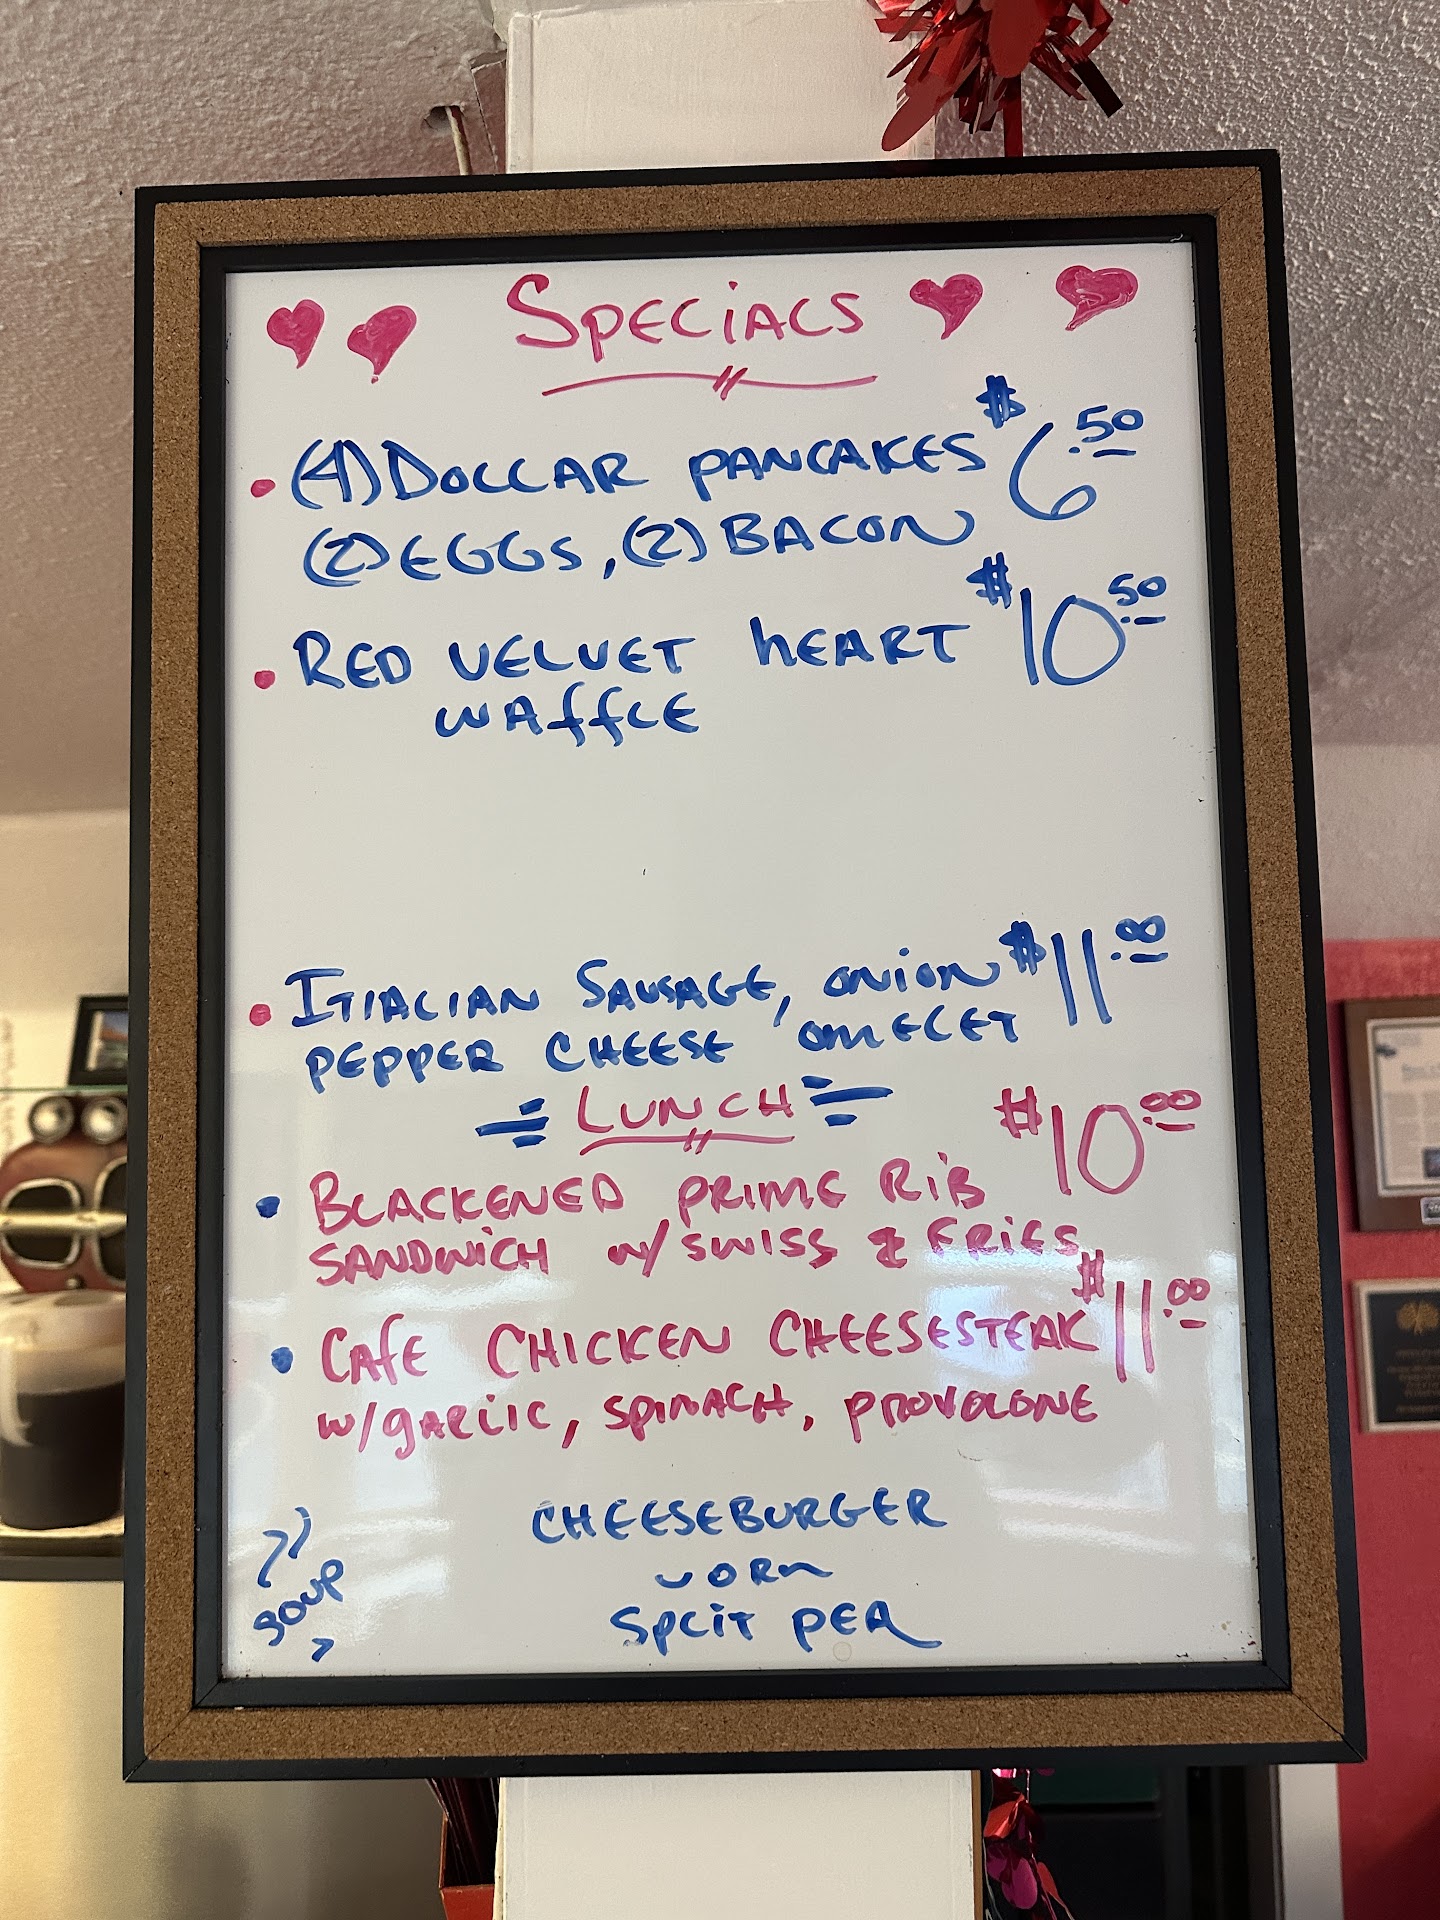 SPECIALS
• (4) DOLLAR PANCAKES $6.50
(2) EGGS, (2) BACON
• RED VELVET HEART $10.50
WAFFLE
• ITIALIAN SAUSAGE, ONION $11.00
PEPPER CHEESE OMELET
LUNCH
• BLACKENED PRIME RIB $10.00
SANDWICH W/ SWISS & FRIES
• CAFE CHICKEN CHEESESTEAK $11.00
W/ GARLIC, SPINACH, PROVOLONE
SOUP
CHEESEBURGER
OR
SPLIT PEA